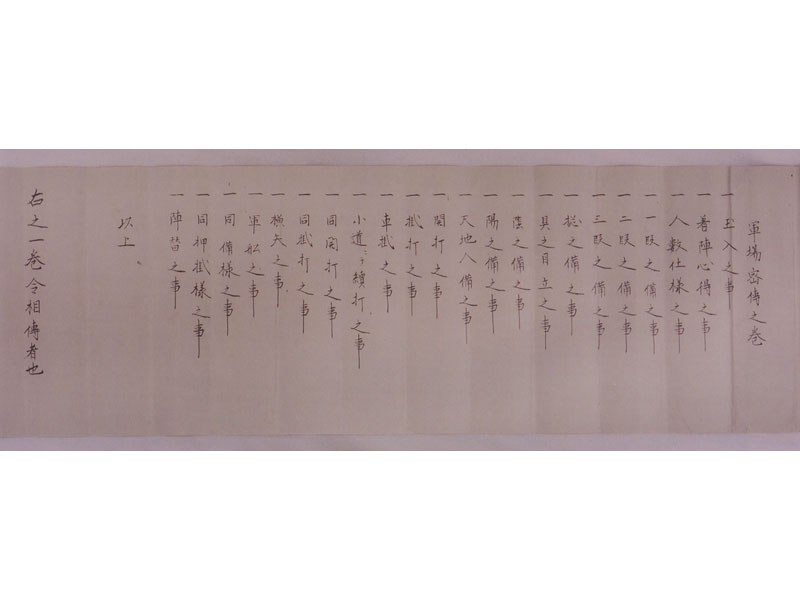 軍場密傳之巻
一 玉入之事
一 着陣心得之事
一 人數仕様之事
一 一段之備之事
一 二段之備之事
一 三段之備之事
一 之備之事
一 具之目立之事
一 陰之備之事
一 陽之備之事
一 天地人備之事
一 開打之事
一 掛打之事
一 車掛之事
一 小道ニ而續打之事
一 同開打之事
一 同掛打之事
一 横矢之事
一 軍舩之事
一 同備様之事
一 同押掛様之事
一 陣皆之事
以上
右之一巻令相傳者也